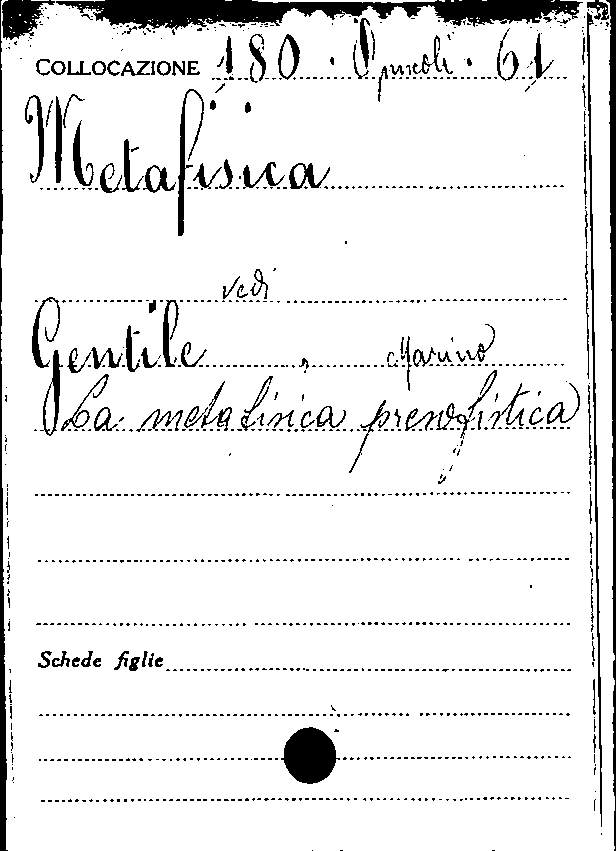 COLLOCAZIONE 180 . Opuscoli . 61
Metafisica
vedi
Gentile , Marino
La metafisica presofistica
Schede figlie